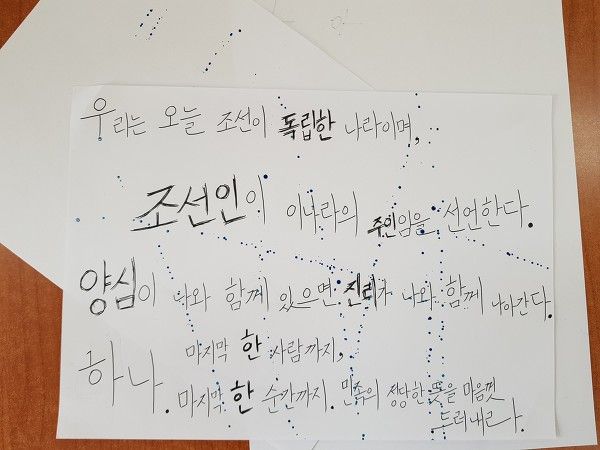 우리는 오늘 조선이 독립한 나라이며,
조선인이 이나라의 주인임을 선언한다.
양심이 나와 함께 있으면 진리가 나와 함께 나아간다.
하나. 마지막 한 사람까지,
마지막 한 순간까지. 민족의 정당한 뜻을 마음껏
드러내라.